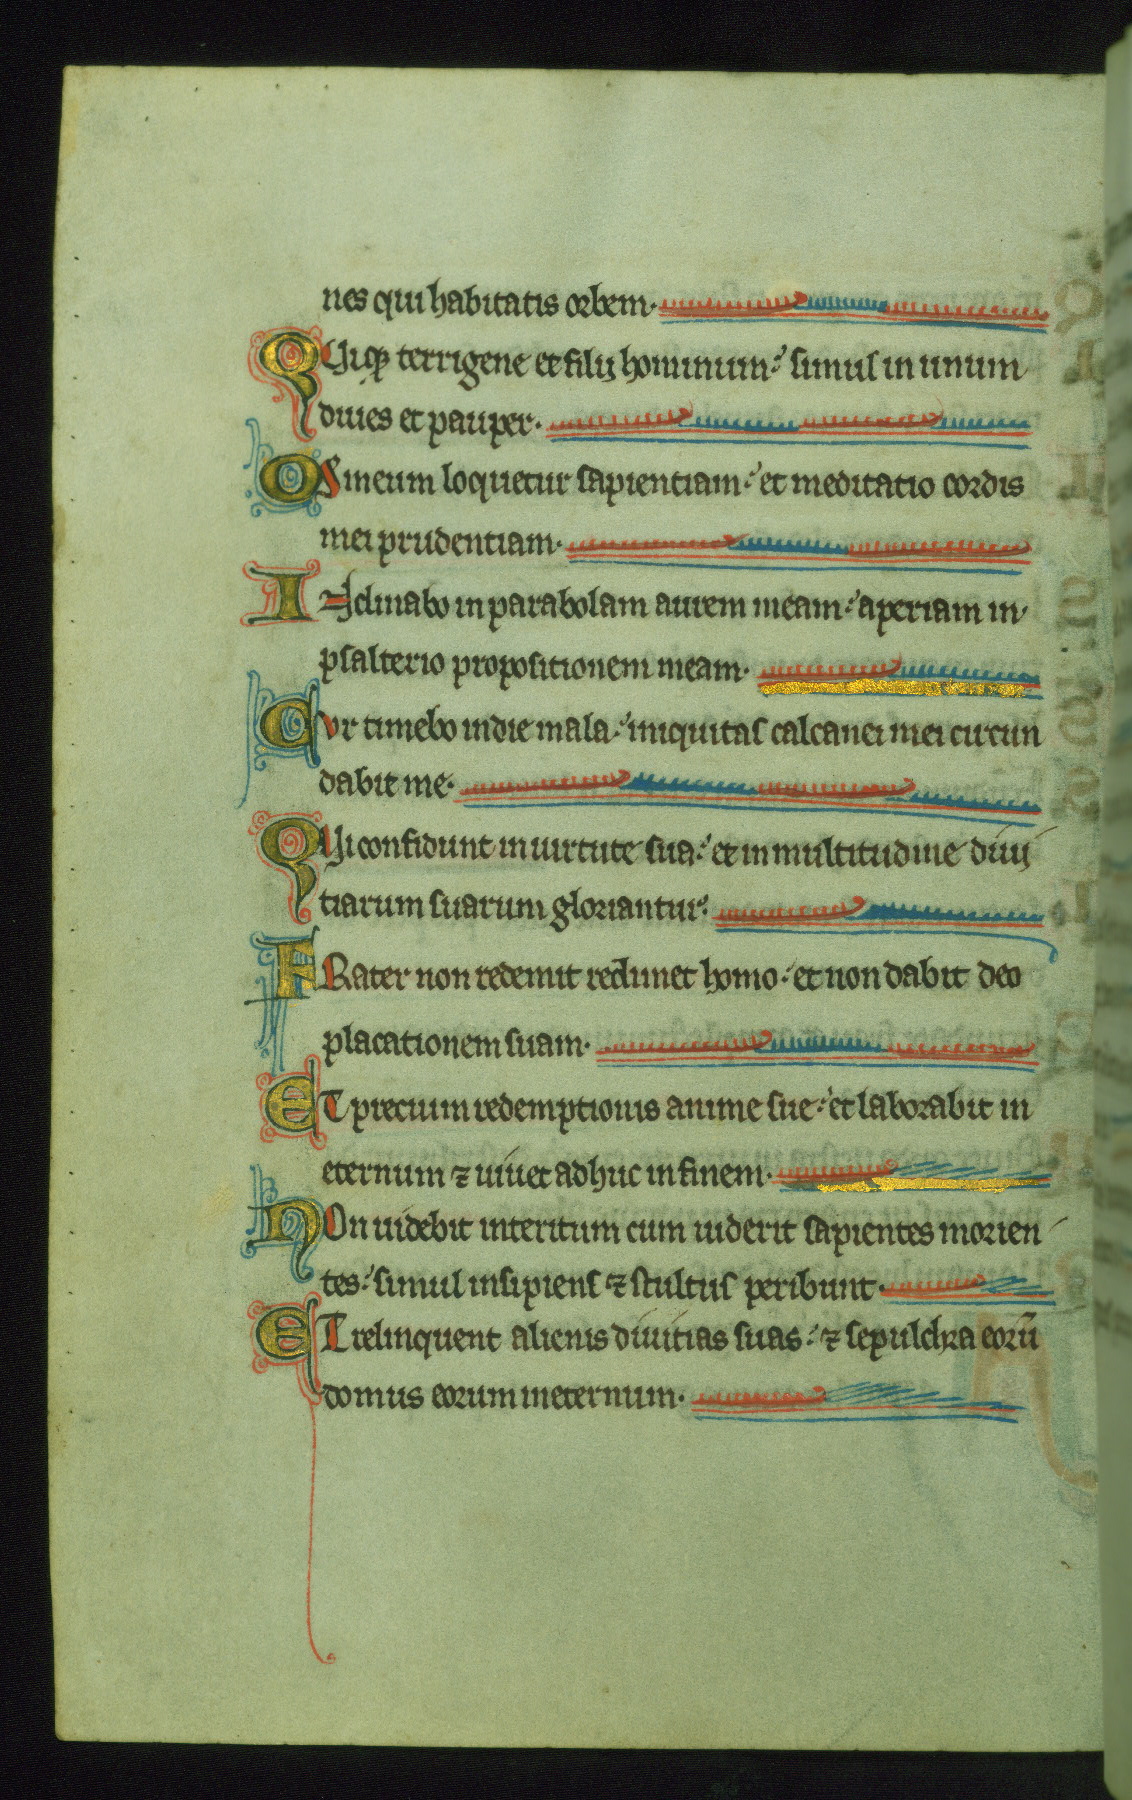 nes qui habitatis orbem·
QUiq; terrigene et filij hominum: simul in unum
diues et pauper·
OS meum loquetur sapientiam: et meditatio cordis
mei prudentiam·
INclinabo in parabolam aurem meam: aperiam in
psalterio propositionem meam·
CUr timebo in die mala: iniquitas calcanei mei circun
dabit me·
QUi confidunt in uirtute sua: et in multitudine diui
tiarum suarum gloriantur·
FRater non redemit redimet homo: et non dabit deo
placationem suam·
ET precium redemptionis anime sue: et laborabit in
eternum ⁊ uiuet adhuc in finem·
NOn uidebit interitum cum uiderit sapientes morien
tes: simul insipiens ⁊ stultus peribunt·
ET relinquent alienis diuitias suas: ⁊ sepulchra eorū
domus eorum in eternum·